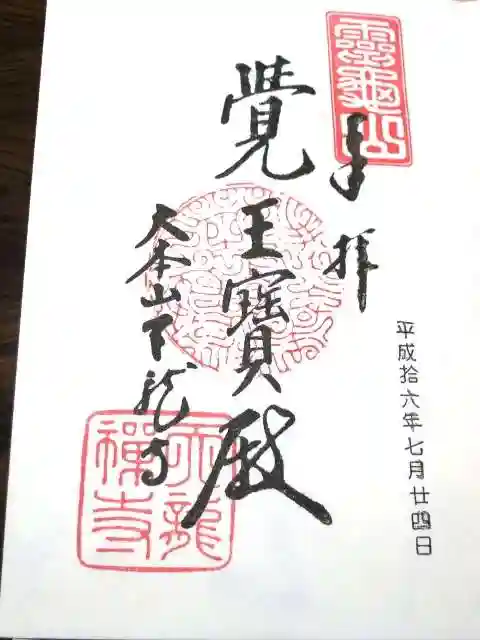 奉拝
平成拾六年七月廿四日
覺王寶殿
大本山天龍寺
靈龜山
天龍禪寺